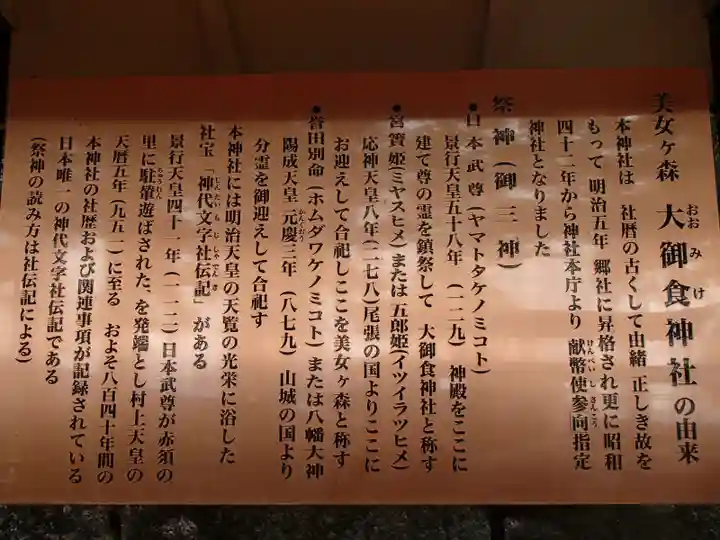 美女ヶ森 大御食神社の由来
本神社は 社暦の古くして由緒 正しき故を
もって 明治五年 郷社に昇格され更に昭和
四十二年から神社本庁より 献幣使参向指定
神社となりました
祭神(御三神)
●日本武尊(ヤマトタケノミコト)
景行天皇五十八年(一二九)神殿をここに
建て尊の霊を鎮祭して 大御食神社と称す
●宮簀姫(ミヤスヒメ)または五郎姫(イツイラツヒメ)
応神天皇八年(二七八)尾張の国よりここに
お迎えして合祀しここを美女ヶ森と称す
●誉田別命(ホムダワケノミコト)または八幡大神
陽成天皇元慶三年(八七九)山城の国より
分霊を御迎えして合祀す
本神社には明治天皇の天覧の光栄に浴した
社宝「神代文字社伝記」がある
景行天皇四十一年(一一二)日本武尊が赤須の
里に駐輦遊ばされた、を発端とし村上天皇の
天暦五年(九五一)に至る およそ八百四十年間の
本神社の社歴および関連事項が記録されている
日本唯一の神代文字社伝記である
(祭神の読み方は社伝記による)